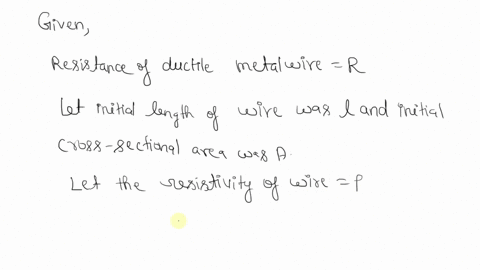 Given,
Resistance of ductile metal wire = R
Let initial length of wire was l and initial
cross-sectional area was A.
Let the resistivity of wire = ρ